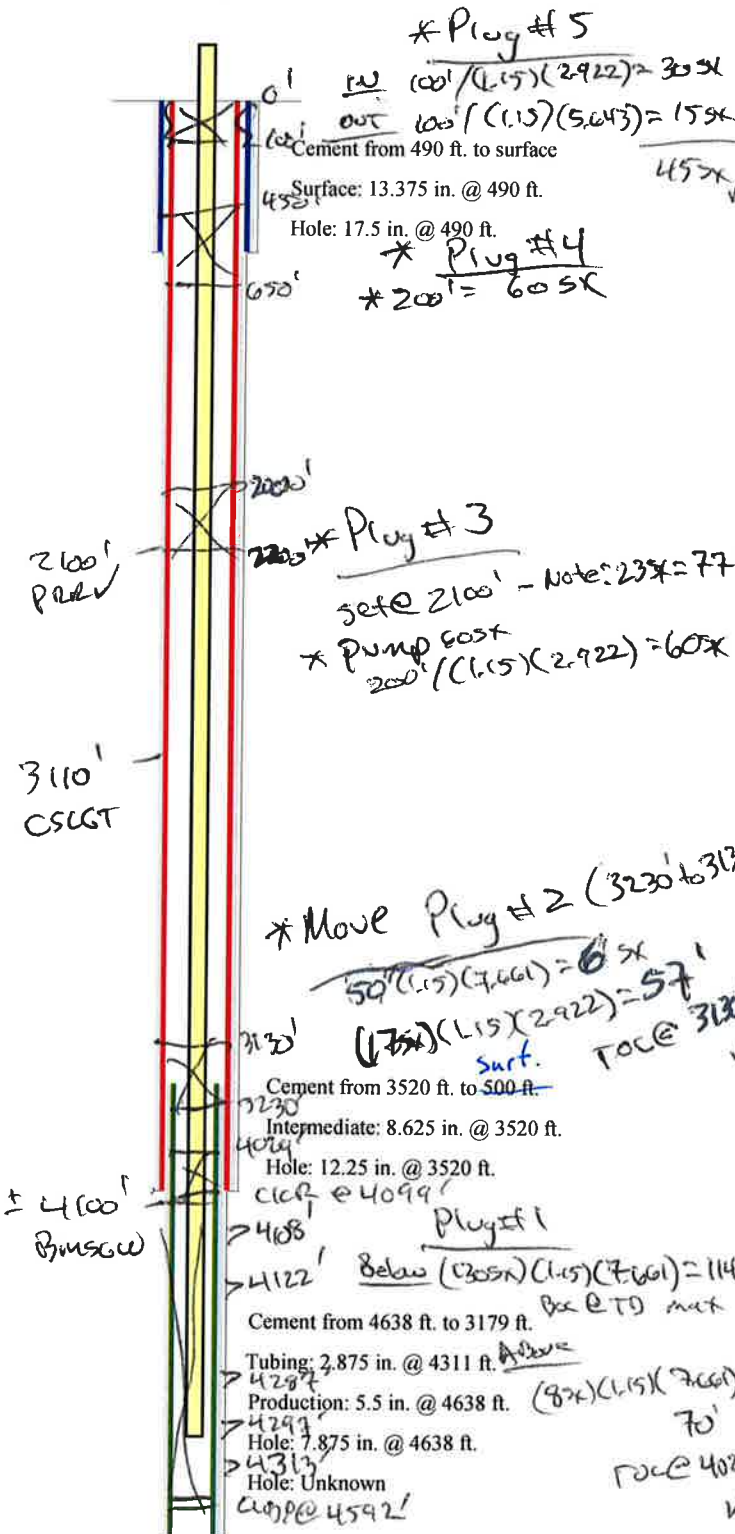 * Plug #5
0'
IN 100'/(1.15)(2.922)= 30sx
100'
OUT 100'/(1.15)(5.643)= 15sx
Cement from 490 ft. to surface
45sx
Surface: 13.375 in. @ 490 ft.
450'
Hole: 17.5 in. @ 490 ft.
* Plug #4
650'
* 200' = 60 sx
2000'
2100'
PRRV
2200'
* Plug #3
set@ 2100' - Note: 23sx=77
* Pump 60sx
200'/(1.15)(2.922)=60sx
3110'
CSCGT
* Move Plug #2 (3230' to 313
50'(1.15)(7.661)= 6 sx
(17sx)(1.15)(2.922)=57'
3130'
TOC@ 3130
surf.
Cement from 3520 ft. to 500 ft.
3230'
Intermediate: 8.625 in. @ 3520 ft.
4029'
Hole: 12.25 in. @ 3520 ft.
CICR @ 4099'
± 4100'
BMSGW
4108'
Plug #1
4122'
Below (130sx)(1.15)(7.661)=114
BOC @ TD max
Cement from 4638 ft. to 3179 ft.
Tubing: 2.875 in. @ 4311 ft.
Above
4287'
Production: 5.5 in. @ 4638 ft.
(8sx)(1.15)(7.661)
4297'
70'
Hole: 7.875 in. @ 4638 ft.
4313'
TOC@ 402
Hole: Unknown
@ 4592'